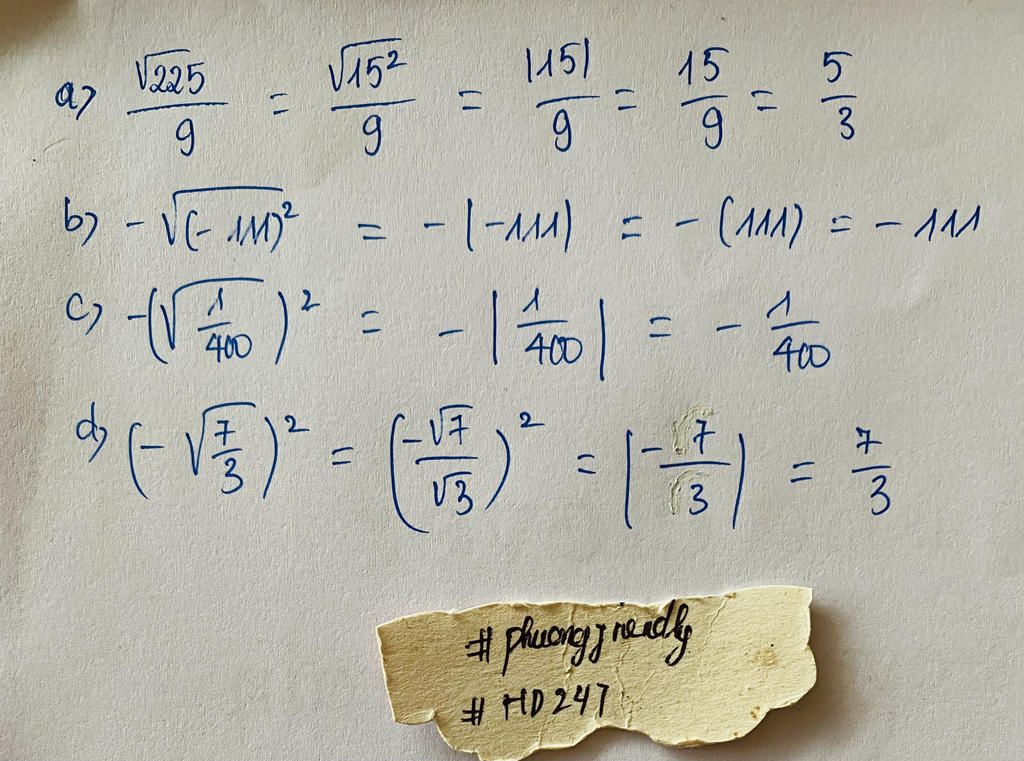 a) √225/9 = √15²/9 = |15|/9 = 15/9 = 5/3
b) -√(-111)² = -|-111| = -(111) = -111
c) -(√1/400)² = -|1/400| = -1/400
d) (-√7/3)² = (-√7/√3)² = |-7/3| = 7/3
# phuongfriendly
# HD247